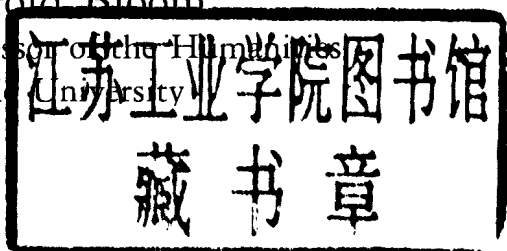 Bloom
of the Humanities
University
江苏工业学院图书馆
藏书章